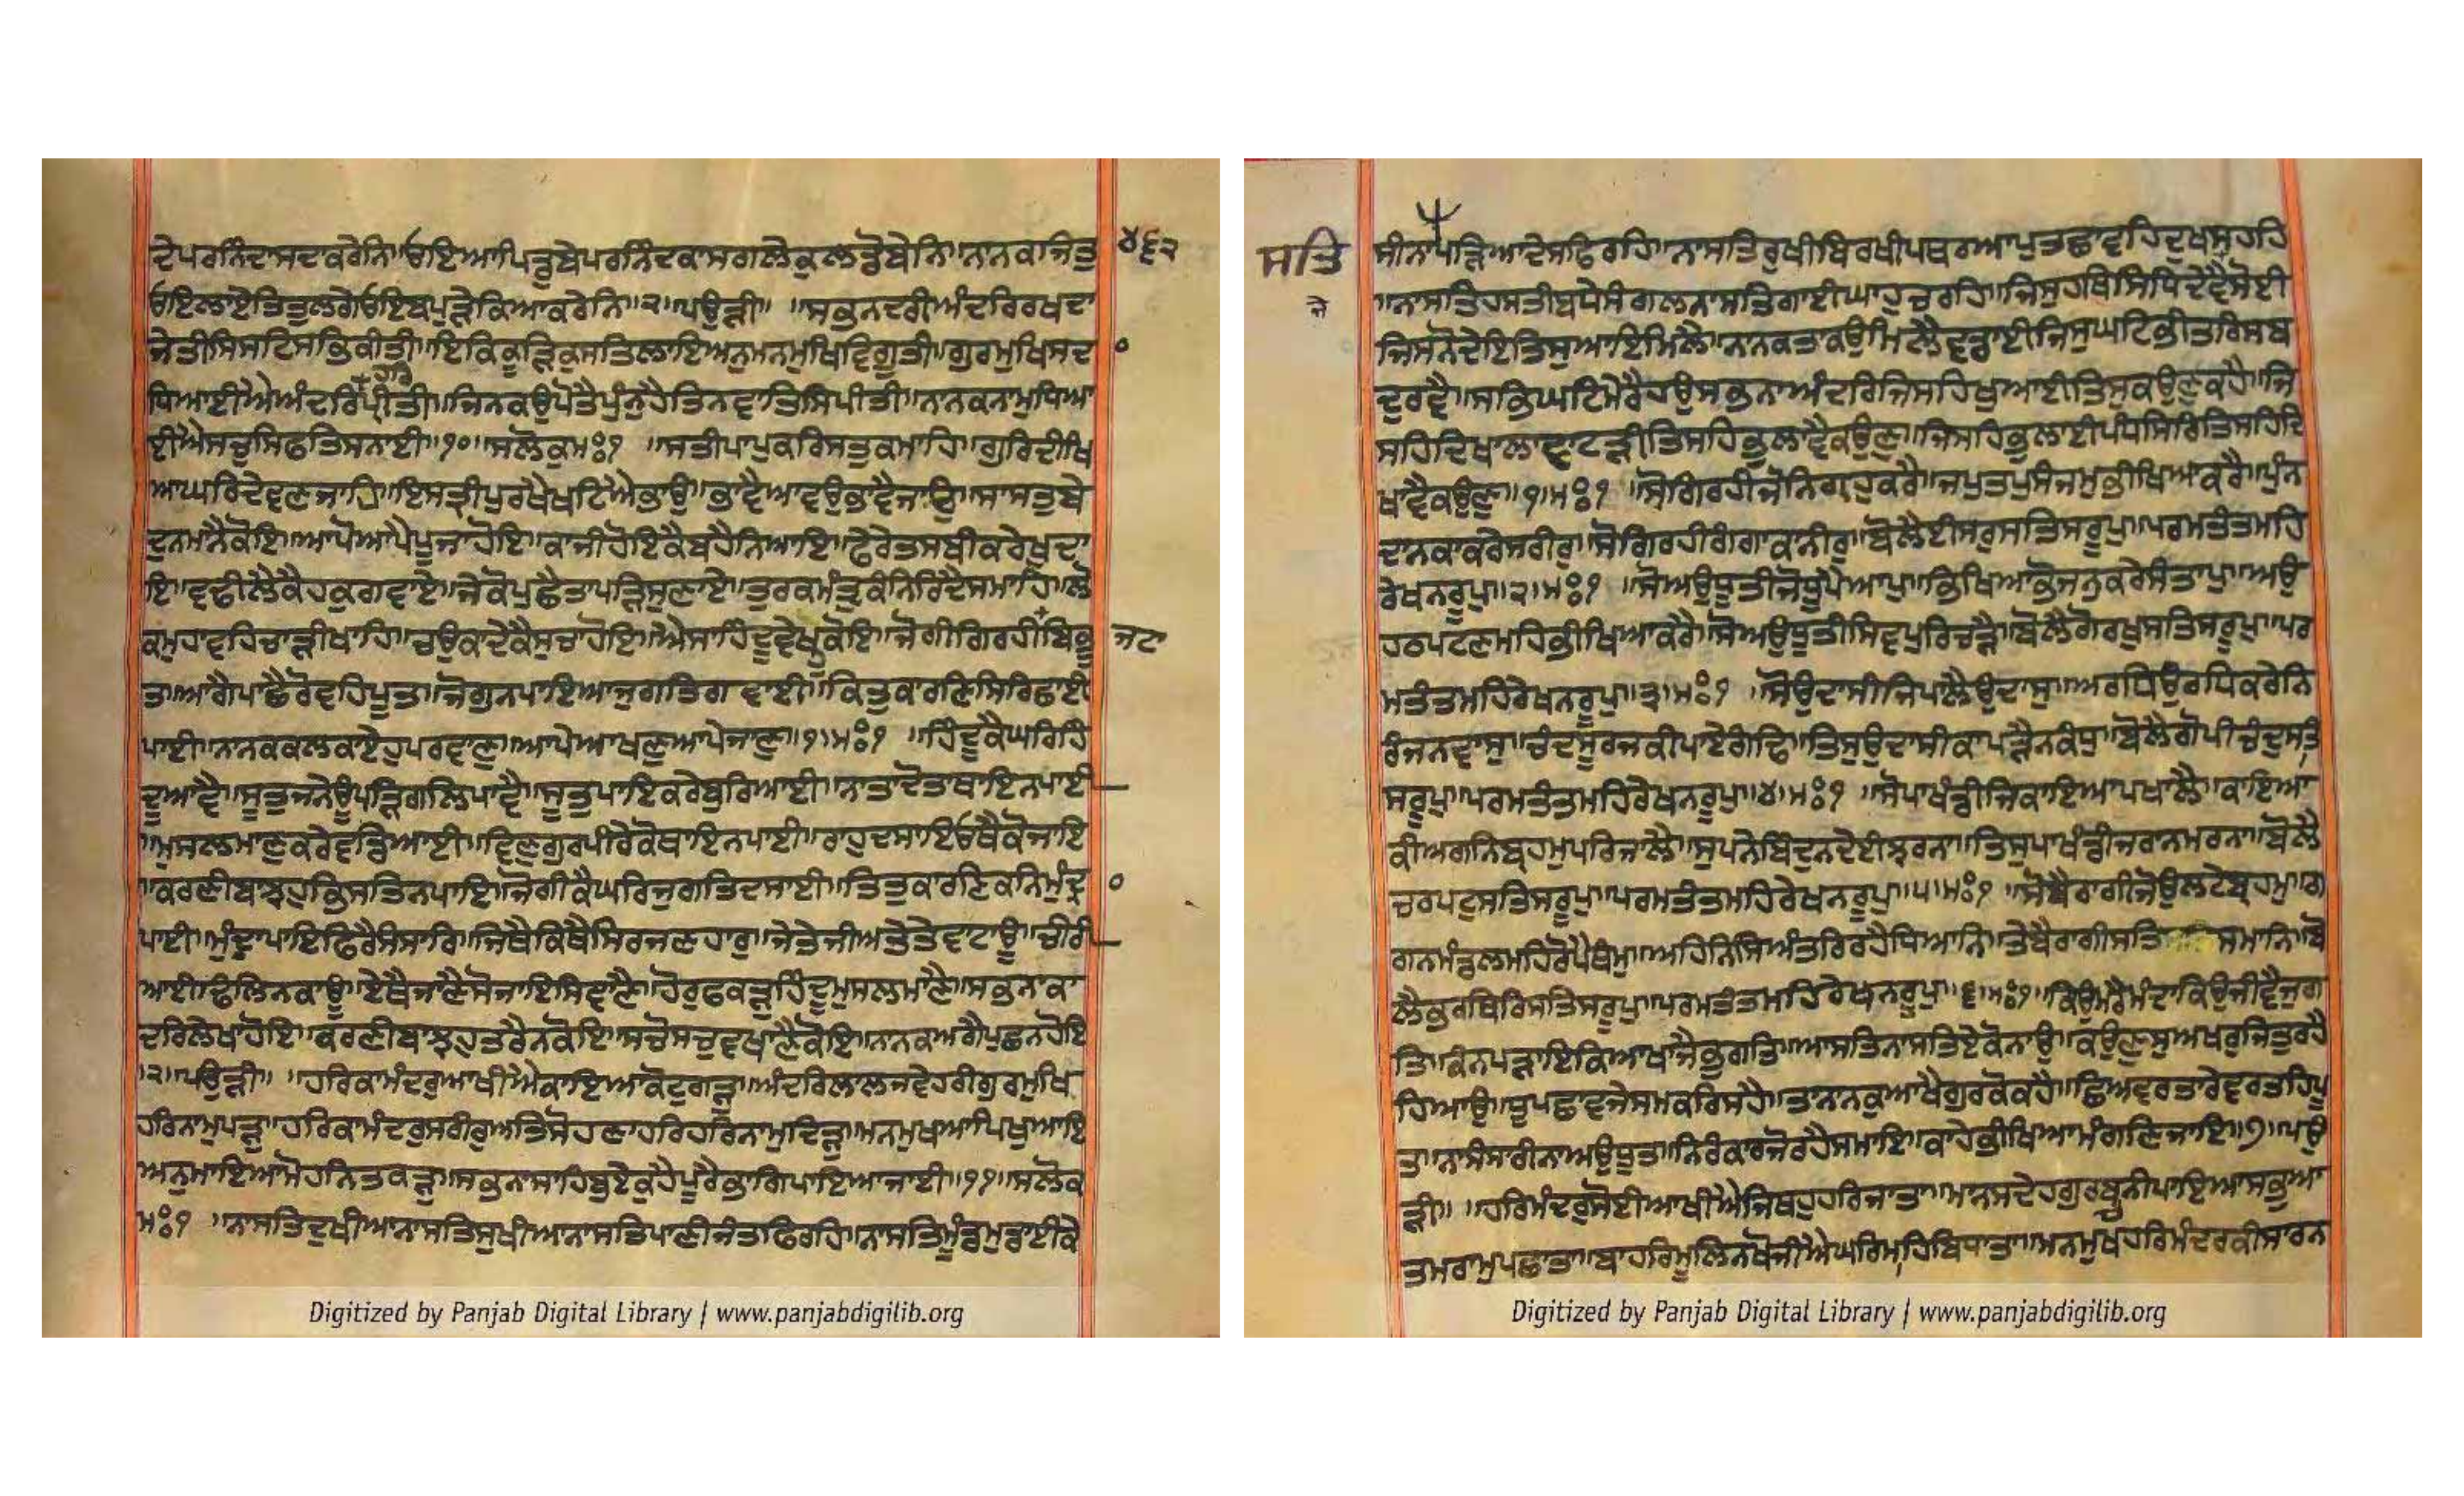 ਦੇਪਰਨਿੰਦਾਸਦਕਰੇਨਿ॥ਓਇਆਪਿਡੁਬੇਪਰਨਿੰਦਕਾਸਗਲੋਕੁਲਡੋਬੇਨਿ॥ਨਾਨਕਾਜਿਤੁ
੪੬੨
ਓਇਲਾਏਤਿਤੁਲਗੇਓਇਬਪੁੜੇਕਿਆਕਰੇਨਿ॥੨॥ਪਉੜੀ॥ ॥ਸਭਨਦਰੀਅੰਦਰਿਰਖਦਾ
ਜੇਤੀਸਿਸਟਿਸਭਿਕੀਤੀ॥ਇਕਿਕੂੜਿਕੁਸਤਿਲਾਇਅਨੁਮਨਮੁਖਿਵਿਗੁਤੀ॥ਗੁਰਮੁਖਿਸਦ
੦
ਧਿਆਈਐਅੰਦਰਿਪੀਤੀ॥ਜਿਨਕਉਪੋਤੈਪੁੰਨੁਹੈਤਿਨਵਾਤਿਸਿਪੀਤੀ॥ਨਾਨਕਨਾਮੁਧਿਆ
ਈਐਸਚੁਸਿਫਤਿਸਨਾਈ॥੧੦॥ਸਲੋਕੁਮਃ੧ ॥ਸਤੀਪਾਪੁਕਰਿਸਤੁਕਮਾਹਿ॥ਗੁਰਦੀਖਿ
ਆਘਰਿਦੇਵਣਜਾਹਿ॥ਇਸਤ੍ਰੀਪੁਰਖੈਖਟਿਐਭਾਉ॥ਭਾਵੈਆਵਉਭਾਵੈਜਾਉ॥ਸਾਸਤੁਬੇ
ਦੁਨਮਾਨੈਕੋਇ॥ਆਪੋਆਪੈਪੂਜਾਹੋਇ॥ਕਾਜੀਹੋਇਕੈਬਹੈਨਿਆਇ॥ਫੇਰੇਤਸਬੀਕਰੇਖੁਦਾ
ਇ॥ਵਢੀਲੈਕੈਹਕੁਗਵਾਏ॥ਜੇਕੋਪੁਛੈਤਾਪੜਿਸੁਣਾਏ॥ਤੁਰਕਮੰਤ੍ਰੁਕੰਨਿਰਿਦੈਸਮਾਹਿ॥ਲੋ
ਕਮੁਹਾਵਹਿਚਾੜੀਖਾਹਿ॥ਚਉਕਾਦੇਕੈਸੁਚਾਹੋਇ॥ਐਸਾਹਿੰਦੂਵੇਖਹੁਕੋਇ॥ਜੋਗੀਗਿਰਹੀਬਿਭੂ
ਜਟਾ
ਤਾ॥ਆਗੈਪਾਛੈਰੋਵਹਿਪੂਤਾ॥ਜੋਗੁਨਪਾਇਆਜੁਗਤਿਗਵਾਈ॥ਕਿਤੁਕਾਰਣਿਸਿਰਿਛਾਈ
ਪਾਈ॥ਨਾਨਕਕਲਕਾਏਹੁਪਰਵਾਣੁ॥ਆਪੇਆਖਣੁਆਪੇਜਾਣੁ॥੧॥ਮਃ੧ ॥ਹਿੰਦੂਕੈਘਰਿਹਿੰ
ਦੂਆਵੈ॥ਸੂਤੁਜਨੇਊਪੜਿਗਲਿਪਾਵੈ॥ਸੂਤੁਪਾਇਕਰੇਬੁਰਿਆਈ॥ਨਾਤਾਧੋਤਾਥਾਇਨਪਾਈ
॥ਮੁਸਲਮਾਣੁਕਰੇਵਡਿਆਈ॥ਵਿਣੁਗੁਰਪੀਰੈਕੋਥਾਇਨਪਾਈ॥ਰਾਹੁਦਸਾਇਓਥੈਕੋਜਾਇ
॥ਕਰਣੀਬਾਝਹੁਭਿਸਤਿਨਪਾਇ॥ਜੋਗੀਕੈਘਰਿਜੁਗਤਿਦਸਾਈ॥ਤਿਤੁਕਾਰਣਿਕਨਿਮੁੰਦ੍ਰ
੦
ਪਾਈ॥ਮੁੰਦ੍ਰਾਪਾਇਫਿਰੈਸੰਸਾਰਿ॥ਜਿਥੈਕਿਥੈਸਿਰਜਣਹਾਰੁ॥ਜੇਤੇਜੀਅਤੇਤੇਵਾਟਾਊ॥ਚੀਰੀ
ਆਈਢਿਲਨਕਾਊ॥ਏਥੈਜਾਣੈਸੋਜਾਇਸਿਞਾਣੈ॥ਹੋਰੁਫਕੜੁਹਿੰਦੂਮੁਸਲਮਾਣੈ॥ਸਭਨਾਕਾ
ਦਰਿਲੇਖਾਹੋਇ॥ਕਰਣੀਬਾਝਹੁਤਰੈਨਕੋਇ॥ਸਚੋਸਚੁਵਖਾਣੈਕੋਇ॥ਨਾਨਕਅਗੈਪੁਛਨਹੋਇ
॥੨॥ਪਉੜੀ॥ ॥ਹਰਿਕਾਮੰਦਰੁਆਖੀਐਕਾਇਆਕੋਟੁਗੜੁ॥ਅੰਦਰਿਲਾਲਜਵੇਹਰੀਗੁਰਮੁਖਿ
ਹਰਿਨਾਮੁਪੜੁ॥ਹਰਿਕਾਮੰਦਰੁਸਰੀਰੁਅਤਿਸੋਹਣਾਹਰਿਹਰਿਨਾਮੁਦਿੜੁ॥ਮਨਮੁਖਆਪਿਖੁਆਇ
ਅਨੁਮਾਇਆਮੋਹਨਿਤਕੜੁ॥ਸਭਨਾਸਾਹਿਬੁਏਕੁਹੈਪੂਰੈਭਾਗਿਪਾਇਆਜਾਈ॥੧੧॥ਸਲੋਕ
ਮਃ੧ ॥ਨਾਸਤਿਦੁਖੀਆਨਾਸਤਿਸੁਖੀਆਨਾਸਤਿਪਾਣੀਜੰਤਫਿਰਹਿ॥ਨਾਸਤਿਮੂੰਡਮੁਡਾਈਕੇ
Digitized by Panjab Digital Library | www.panjabdigilib.org
ਸਤਿ
ਜੇ
ਸੀਨਾਪੜਿਆਦੇਸਫਿਰਹਿ॥ਨਾਸਤਿਰੁਖੀਬਿਰਖੀਪਥਰਆਪੁਤਛਾਵਹਿਦੁਖਸਹਹਿ
॥ਨਾਸਤਿਹਸਤੀਬਧੇਸੰਗਲਨਾਸਤਿਗਾਈਘਾਹੁਚਰਹਿ॥ਜਿਸੁਹਥਿਸਿਧਿਦੇਵੈਸੋਈ
ਜਿਸਨੋਦੇਇਤਿਸੁਆਇਮਿਲੈ॥ਨਾਨਕਤਾਕਉਮਿਲੈਵਡਾਈਜਿਸੁਘਟਿਭੀਤਰਿਸਬ
ਦੁਰਵੈ॥ਸਭਿਘਟਿਮੇਰੈਹਉਸਭਨਾਅੰਦਰਿਜਿਸਹਿਖੁਆਈਤਿਸੁਕਉਣੁਕਹੈ॥ਜਿ
ਸਹਿਦਿਖਾਲਾਵਾਟੜੀਤਿਸਹਿਭੁਲਾਵੈਕਉਣੁ॥ਜਿਸਹਿਭੁਲਾਈਪੰਧਸਿਰਿਤਿਸਹਿਦਿ
ਖਾਵੈਕਉਣੁ॥੧॥ਮਃ੧ ॥ਸੋਗਿਰਹੀਜੋਨਿਗ੍ਰਹੁਕਰੈ॥ਜਪੁਤਪੁਸੰਜਮੁਭੀਖਿਆਕਰੈ॥ਪੁੰਨ
ਦਾਨਕਾਕਰੇਸਰੀਰੁ॥ਸੋਗਿਰਹੀਗੰਗਾਕਾਨੀਰੁ॥ਬੋਲੈਈਸਰੁਸਤਿਸਰੂਪੁ॥ਪਰਮਤੰਤਮਹਿ
ਰੇਖਨਰੂਪੁ॥੨॥ਮਃ੧ ॥ਸੋਅਉਧੂਤੀਜੋਧੂਪੈਆਪੁ॥ਭਿਖਿਆਭੋਜਨੁਕਰੇਸੰਤਾਪੁ॥ਅਉ
ਹਠਪਟਣਮਹਿਭੀਖਿਆਕਰੈ॥ਸੋਅਉਧੂਤੀਸਿਵਪੁਰਿਚੜੈ॥ਬੋਲੈਗੋਰਖੁਸਤਿਸਰੂਪੁ॥ਪਰ
ਮਤੰਤਮਹਿਰੇਖਨਰੂਪੁ॥੩॥ਮਃ੧ ॥ਸੋਉਦਾਸੀਜਿਪਾਲੈਉਦਾਸੁ॥ਅਰਧਿਉਰਧਿਕਰੇਨਿ
ਰੰਜਨਵਾਸੁ॥ਚੰਦਸੂਰਜਕੀਪਾਏਗੰਢਿ॥ਤਿਸੁਉਦਾਸੀਕਾਪੜੈਨਕੰਧੁ॥ਬੋਲੈਗੋਪੀਚੰਦੁਸਤਿ
ਸਰੂਪੁ॥ਪਰਮਤੰਤਮਹਿਰੇਖਨਰੂਪੁ॥੪॥ਮਃ੧ ॥ਸੋਪਾਖੰਡੀਜਿਕਾਇਆਪਖਾਲੈ॥ਕਾਇਆ
ਕੀਅਗਨਿਬ੍ਰਹਮੁਪਰਿਜਾਲੈ॥ਸੁਪਨੇਬਿੰਦੁਨਦੇਈਝਰਨਾ॥ਤਿਸੁਪਾਖੰਡੀਜਰਾਨਮਰਨਾ॥ਬੋਲੈ
ਚਰਪਟੁਸਤਿਸਰੂਪੁ॥ਪਰਮਤੰਤਮਹਿਰੇਖਨਰੂਪੁ॥੫॥ਮਃ੧ ॥ਸੋਬੈਰਾਗੀਜੋਉਲਟੇਬ੍ਰਹਮੁ॥ਗ
ਗਨਮੰਡਲਮਹਿਰੋਪੈਥੰਮੁ॥ਅਹਿਨਿਸਿਅੰਤਰਿਰਹੈਧਿਆਨਿ॥ਤੇਬੈਰਾਗੀਸਤਿ ਸਮਾਨਿ॥ਬੋ
ਲੈਭਰਥਰਿਸਤਿਸਰੂਪੁ॥ਪਰਮਤੰਤਮਹਿਰੇਖਨਰੂਪੁ॥੬॥ਮਃ੧॥ਕਿਉਮਰੈਮੰਦਾਕਿਉਜੀਵੈਜੁਗ
ਤਿ॥ਕੰਨਪੜਾਇਕਿਆਖਾਜੈਭੁਗਤਿ॥ਆਸਤਿਨਾਸਤਿਏਕੋਨਾਉ॥ਕਉਣੁਸੁਅਖਰੁਜਿਤੁਰਹੈ
ਹਿਆਉ॥ਧੂਪਛਾਵਜੇਸਮਕਰਿਸਹੈ॥ਤਾਨਾਨਕੁਆਖੈਗੁਰਕੋਕਹੈ॥ਛਿਅਵਰਤਾਰੇਵਰਤਹਿਪੂ
ਤਾ॥ਨਾਸੰਸਾਰੀਨਾਅਉਧੂਤਾ॥ਨਿਰੰਕਾਰਜੋਰਹੈਸਮਾਇ॥ਕਾਹੇਭੀਖਿਆਮੰਗਣਿਜਾਇ॥੭॥ਪਉ
ੜੀ॥ ॥ਹਰਿਮੰਦਰੁਸੋਈਆਖੀਐਜਿਥਹੁਹਰਿਜਾਤਾ॥ਮਾਨਸਦੇਹਗੁਰਬਚਨੀਪਾਇਆਸਭੁਆ
ਤਮਰਾਮੁਪਛਾਤਾ॥ਬਾਹਰਿਮੂਲਿਨਖੋਜੀਐਘਰਿਮਾਹਿਬਿਧਾਤਾ॥ਮਨਮੁਖਹਰਿਮੰਦਰਕੀਸਾਰਨ
Digitized by Panjab Digital Library | www.panjabdigilib.org